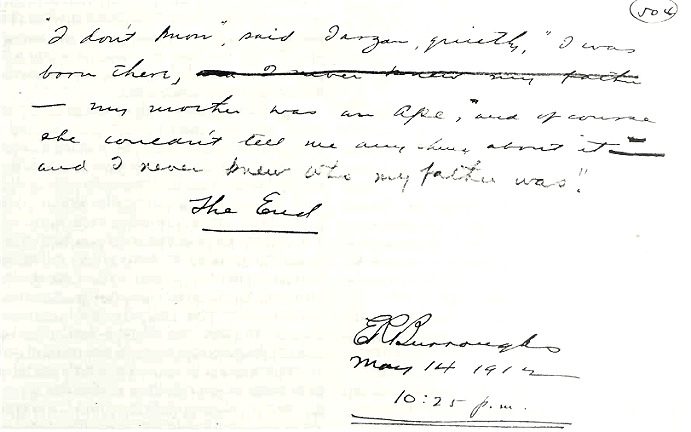 504
"I don't know", said Tarzan, quietly, "I was
born there, and I never knew my father
— my mother was an Ape, and of course
she couldn't tell me any thing about it —
and I never knew who my father was."
The End
ER Burroughs
May 14 1912
10:25 p.m.